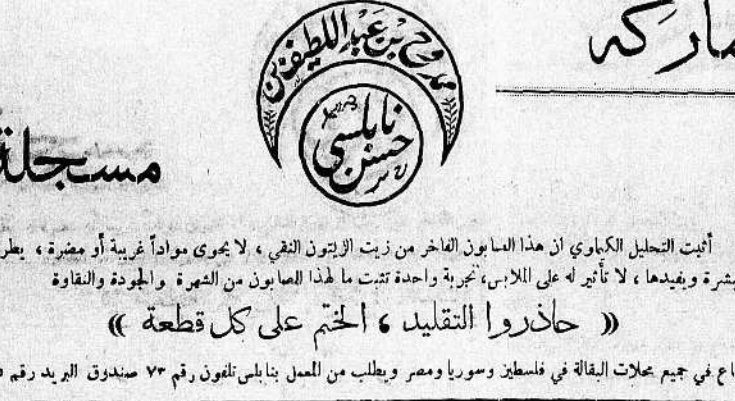 ماركه
مسجلة
ممدوح بن عبد اللطيف زين
نابلسي
حسن
أثبت التحليل الكيماوي ان هذا الصابون الفاخر من زيت الزيتون النقي ، لا يحوى مواداً غريبة أو مضرة ، يطر
بشرة ويفيدها ، لا تأثير له على الملابس، تجربة واحدة تثبت ما لهذا الصابون من الشهرة والجودة والنقاوة
(( حاذروا التقليد ، الختم على كل قطعة ))
اع في جميع محلات البقالة في فلسطين وسوريا ومصر ويطلب من المعمل بنابلس تلفون رقم ٧٣ صندوق البريد رقم